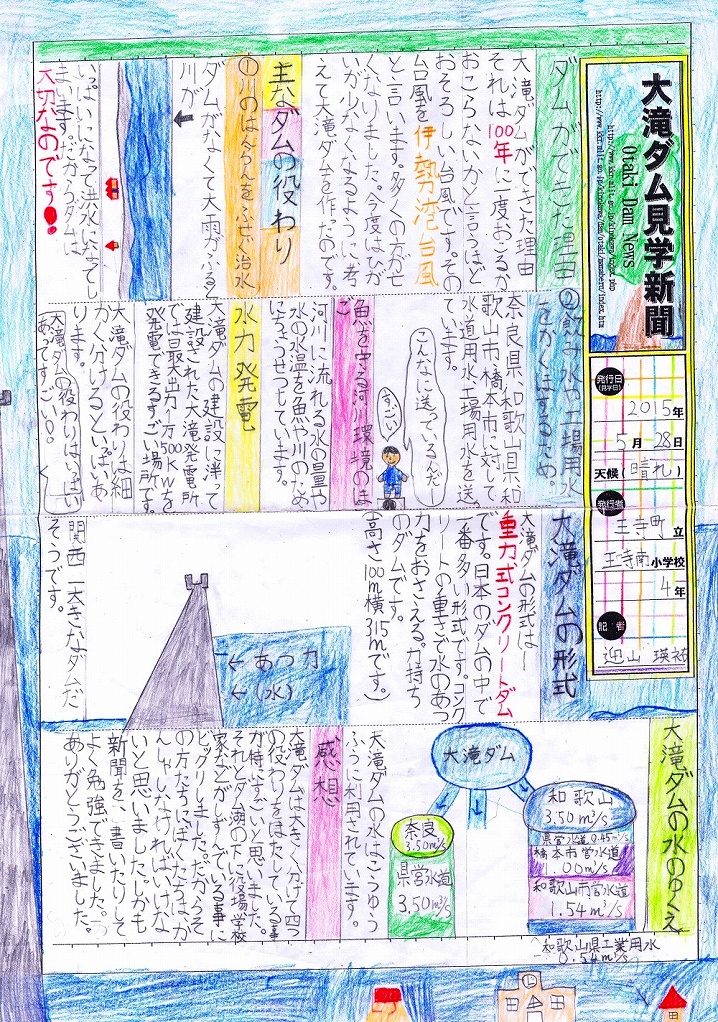 大滝ダム見学新聞
Otaki Dam News
発行日
(見学日)
2015年
5月28日
天候(晴れ)
発行者
王寺町立
王寺南小学校
4年
記者
迎山 瑛祐
ダムができた理由
大滝ダムができた理由
それは100年に一度おこるか
おこらないかと言うほど
おそろしい台風です。その
台風を伊勢湾台風
と言います。多くの方がせ
くなりました。今度はひが
いが少なくなるように考
えて大滝ダムを作たのです。
主なダムの役わり
①川のはんらんをふせぐ治水
ダムがなくて大雨がふると
川が
いっぱいになって洪水になってし
まいます。だからダムは
大切なのです!
②飲み水や工場用水
をかくほするため。
奈良県、和歌山県和
歌山市、橋本市に対して
水道用水、工場用水を送
ています。
こんなに送っているんだー
すごい
魚を守る河川環境のほ
ご
河川に流れる水の量や
水の水温を魚や川のため
に
水力発電
大滝ダムの建設に洋て
建設された大滝発電所
では最大出力1万500KWを
発電できるすごい場所です。
大滝ダムの役わりは細
かく分けるといっぱいあ
ります。
大滝ダムの役わりはいっぱい
あってすごい!
大滝ダムの形式
大滝ダムの形式は—
重力式コンクリートダム
です。日本のダムの中で
一番多い形式です。コンク
リートの重さで水のあつ
力をおさえる。力持ち
のダムです。
(高さ100m横315mです。)
←あつ力
←(水)
関西一大きなダムだ
そうです。
大滝ダムの水のゆくえ
大滝ダム
和歌山
3.50m³/s
県営水道0.45m³/s
橋本市営水道
1.00m³/s
和歌山市営水道
1.54m³/s
和歌山県工業用水
0.54m³/s
奈良
3.50m³/s
県営水道
3.50m³/s
大滝ダムの水はこつゆう
ふうに利用されています。
感想
大滝ダムは大きく分けて四つ
の役わりをはたしている事
が特にすごいと思いました。
それとダム湖の下に役場、学校
家などがしずんでいる事に
ビックリしました。だからそ
の方たちにぼくたちは、か
んしゃしなければいけな
いと思いました。しかも
新聞をを書いたりして
よく勉強できました。
ありがとうございました。